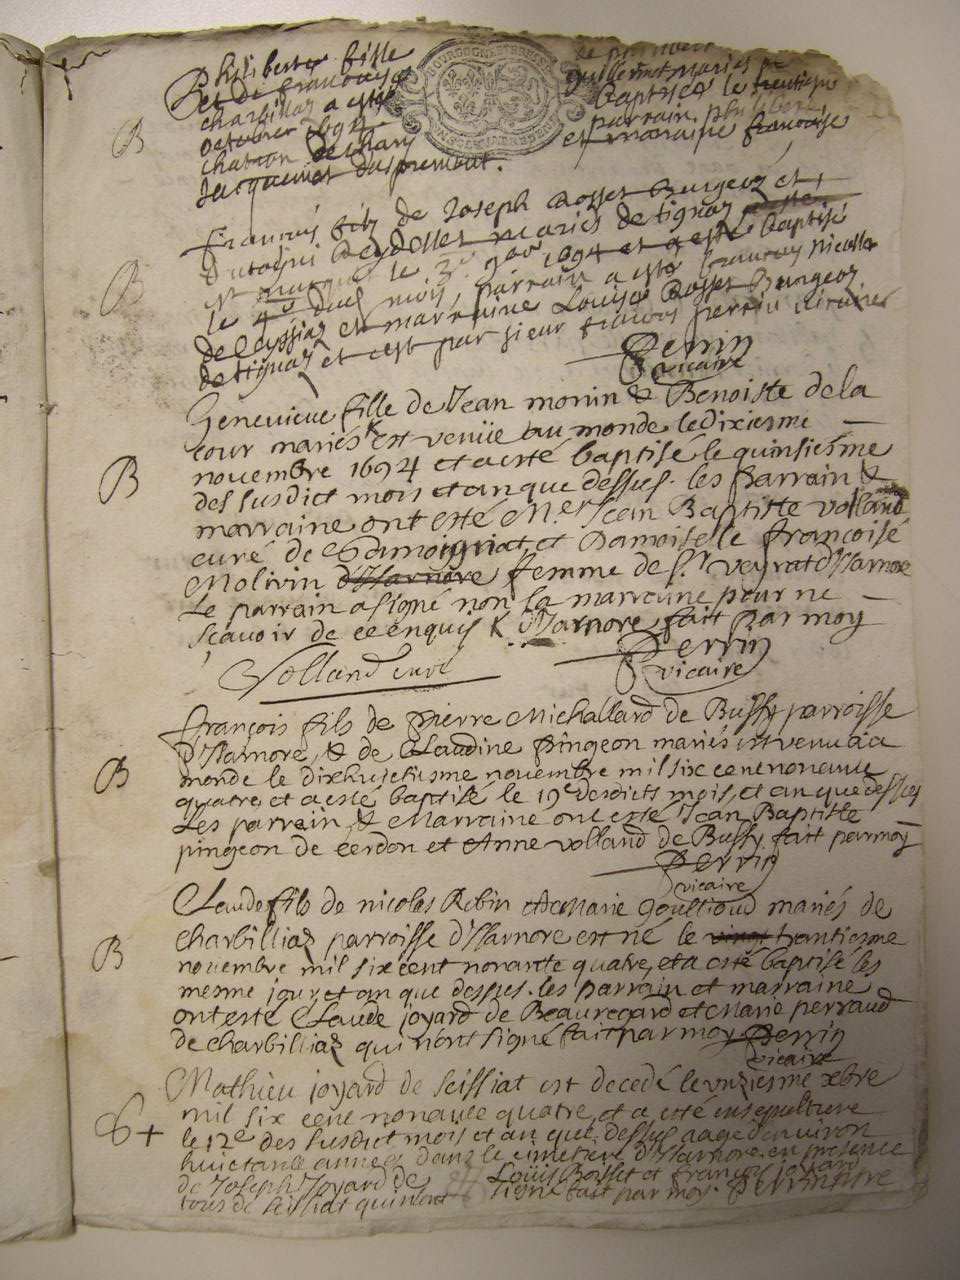 B
Philiberte fille de
et de francoise guillermot mariés de
charbillaz a esté baptisée le trentiesme
octobre 1694 parrain philibert
chatron de et marraine francoise
Jacquemet
B
François fils de Joseph Rosset Burgeoz et
mariés de tignaz
le 3e 9bre 1694 et a esté baptisé
le 4e dud mois, parrain a esté francoy Nicollet
de Ceyssiaz et marraine Louise Rosset Burgeoz
de tignaz et c'est par sieur francois perrin vicaire
Perrin
vicaire
B
Genevieve fille de Jean monin & Benoiste de la
cour mariés est venüe au monde le dixiesme
novembre 1694 et a esté baptisé le quinsiesme
des susdict mois et an que dessus. les parrain &
marraine ont esté Mer Jean Baptiste volland
curé de et Damoiselle françoise
Molivin d'Isarnore femme de Sr veyrat d'Isarnore
Le parrain a signé non la marraine pour ne
sçavoir de ce enquis Isarnore fait par moy
Perrin
vicaire
Volland curé
B
françois fils de Pierre Michallard de Bussy parroisse
d'Isarnore, & de Claudine pingeon mariés est venu au
monde le dixhuictiesme novembre mil six cent nonante
quatre, et a esté baptisé le 19e desdicts mois, et an que dessus
Les parrain & Marraine ont esté Jean Baptiste
pingeon de cerdon et Anne volland de Bussy fait par moy
Perrin
vicaire
B
Claude fils de nicolas Robin et de Marie goultioud mariés de
charbilliaz parroisse d'Isarnore est né le vingt trantiesme
novembre mil six cent nonante quatre, et a esté baptisé les
mesme jour, et an que dessus. les parrain et marraine
ont esté Claude joyard de Beauregard et Marie perraud
de charbilliaz qui n'ont signé fait par moy Perrin
vicaire
+
Mathieu joyard de seissiat est decedé le unziesme xbre
mil six cent nonante quatre, et a esté ensepulturé
le 12e des susdict mois et an que dessus aage d'environ
huictante années dans le cimetiere d'Isarnore en presence
de Joseph Joyard de Louïs Boisset et françois joyard
tous de seissiat qui n'ont signé fait par moy. Perrin vicaire